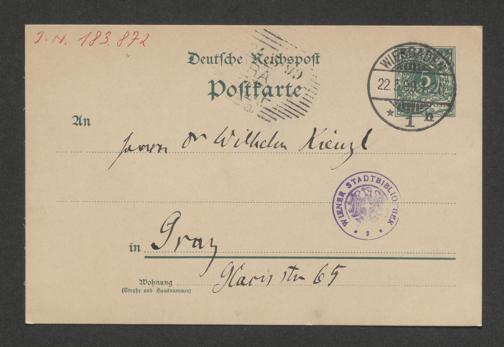 J. N. 183.872
Deutsche Reichspost
Postkarte
WIESBADEN
1
An
Herrn Dr Wilhelm Kienzl
WIENER STADTBIBLIOTHEK
in Graz
Wohnung
(Straße und Hausnummer)
Harrachstr 65